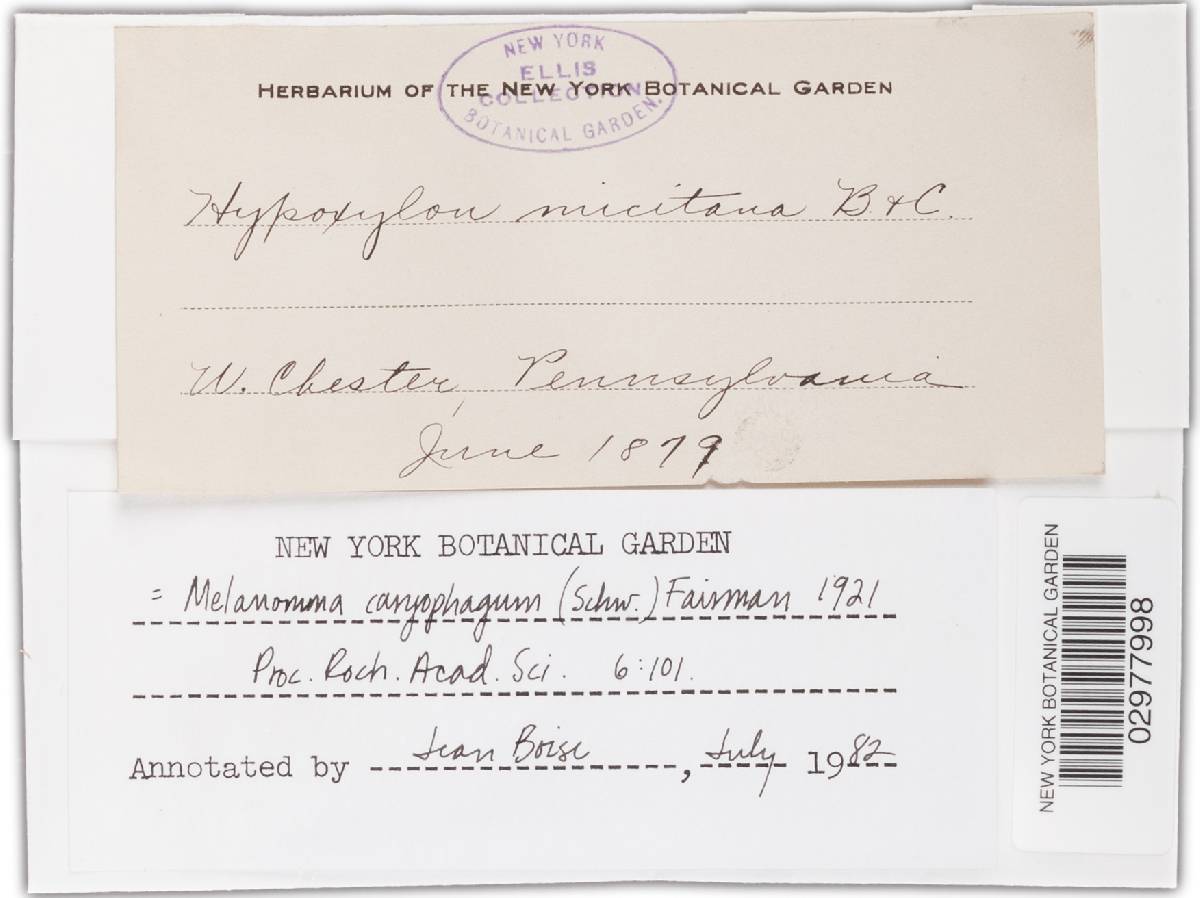 NEW YORK
ELLIS
COLLECTION
BOTANICAL GARDEN.
HERBARIUM OF THE NEW YORK BOTANICAL GARDEN
Hypoxylon micitana B & C.
W. Chester, Pennsylvania
June 1879
NEW YORK BOTANICAL GARDEN
= Melanomma caryophagum (Schw.) Fairman 1921
Proc. Roch. Acad. Sci. 6:101.
Annotated by Jean Boise, July 1982
NEW YORK BOTANICAL GARDEN
02977998